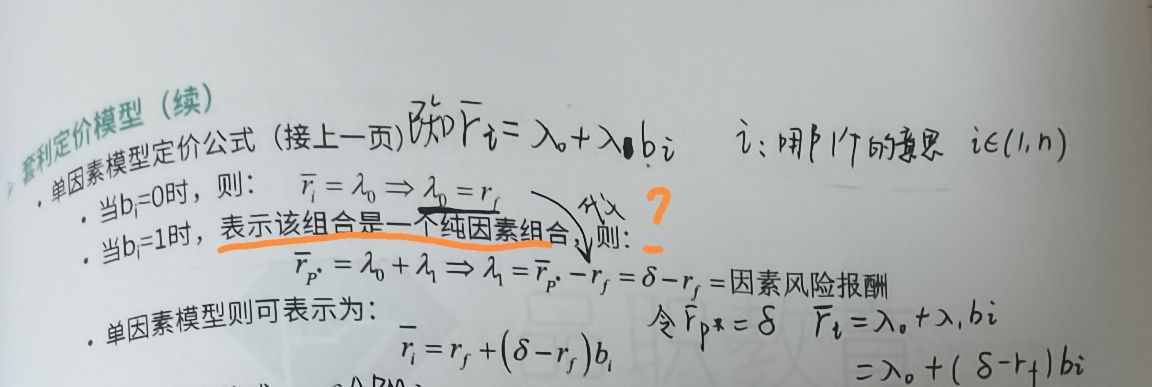 套利定价模型（续）
单因素模型定价公式（接上一页） 已知 r̄i = λ₀ + λ₁bi i：哪1个的意思 i∈(1,n)
· 当bi=0时，则： r̄i = λ₀ ⇒ λ₀ = rf
· 当bi=1时，表示该组合是一个纯因素组合，则： 代入 ?
r̄P* = λ₀ + λ₁ ⇒ λ₁ = r̄P* − rf = δ − rf = 因素风险报酬
· 单因素模型则可表示为： 令 r̄p* = δ r̄i = λ₀ + λ₁bi
r̄i = rf + (δ − rf)bi = λ₀ + (δ − rf)bi